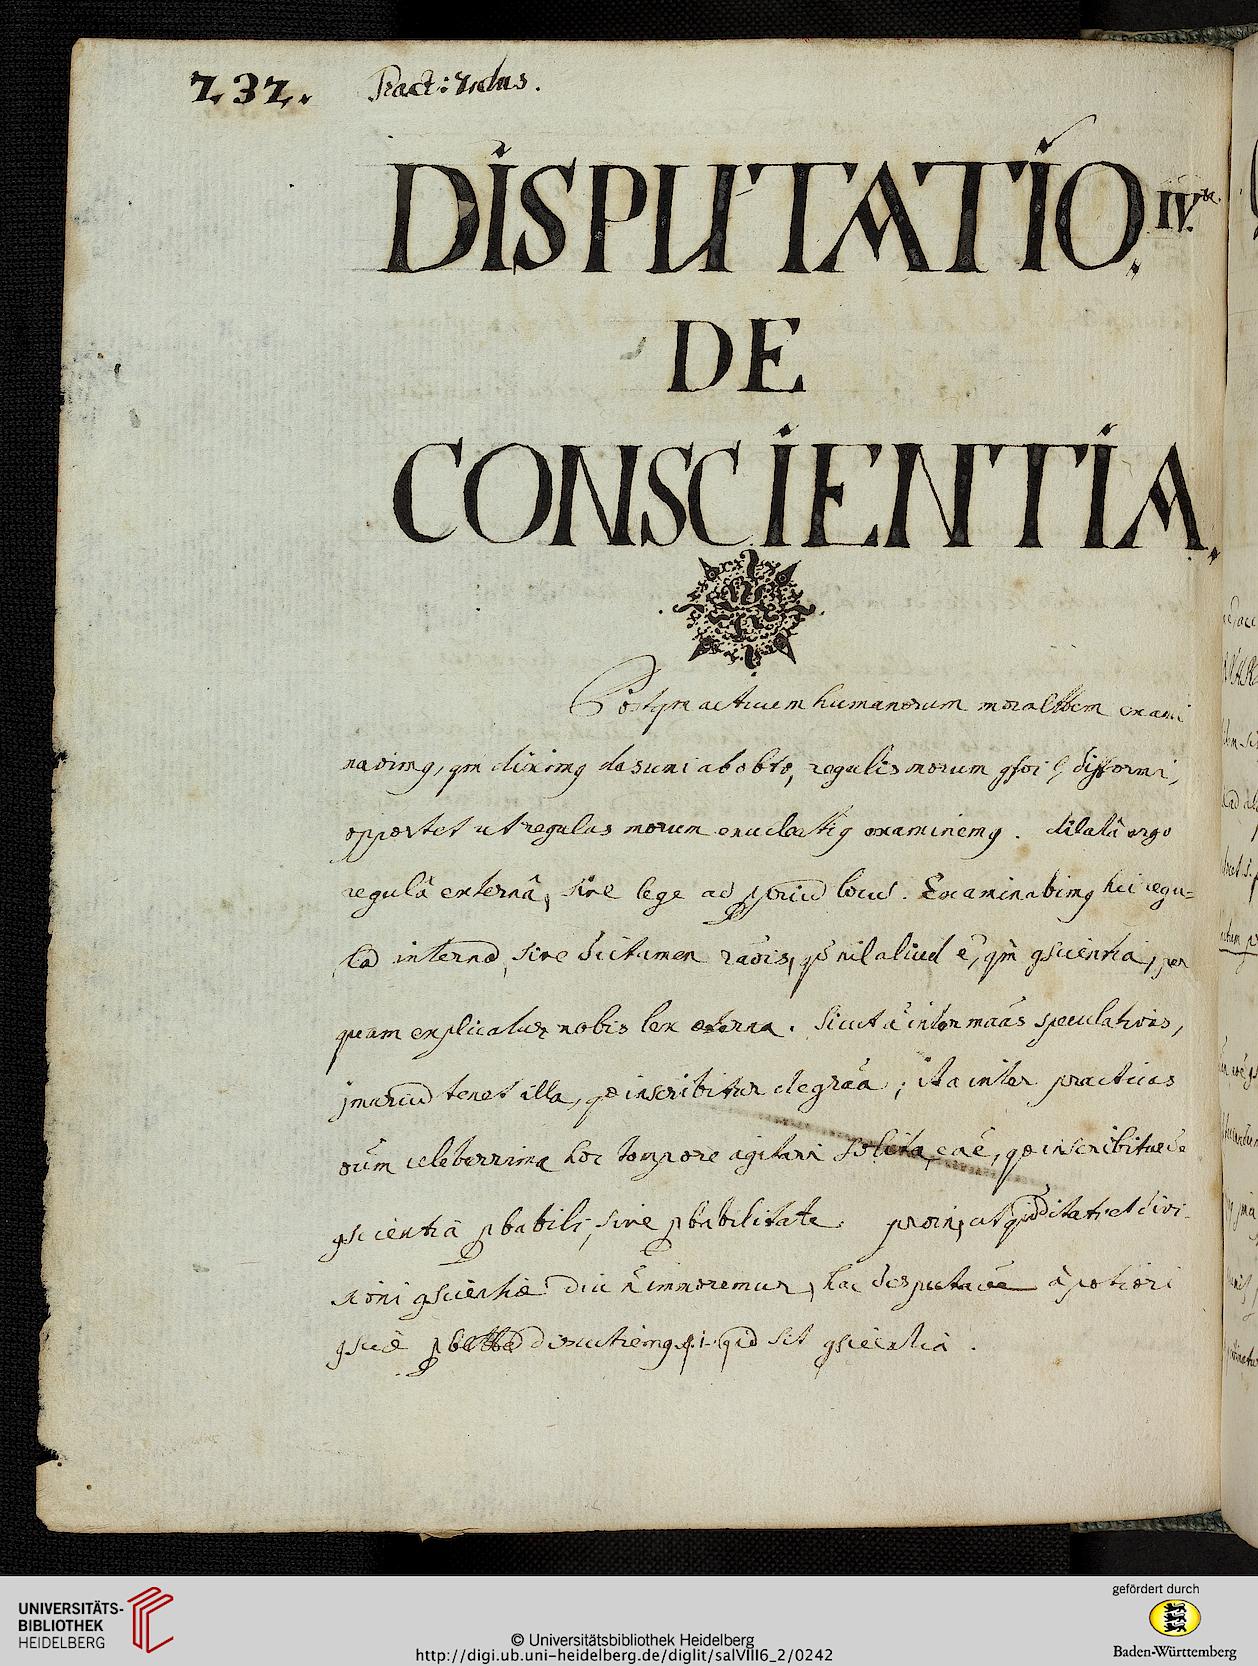 232. Tract: 2dus.
DISPUTATIO IVta.
DE
CONSCIENTIA.
Postqm actuum humanorum moralitem exami
navimg, qm diximg desumi ab obto, regulis morum gfoi l difformi,
opportet ut regulas morum enucleatig examinemg. dilatâ ergo
regulâ externâ, sive lege ad locus. Examinabimg hic regu-
lâ internâ, sive dictamen raõis, qd nil aliud ē, qm gscientia, per
quam explicatur nobis lex æterna. Sicut ā inter maãs speculativas,
tenet illa, quæ inscribitur de grãa; ita inter practicas
oũm celeberrima hoc tempore agitari solita, eaē, quæ inscribitur de
gscientiâ pbabili, sive pbabilitate. ut quidditati et divi-
sioni gscientiæ diu ñ immoremur, hac disputaõe â potiori
discutiemg. q. 1. qid sit gscientia.
UNIVERSITÄTS-
BIBLIOTHEK
HEIDELBERG
© Universitätsbibliothek Heidelberg
http://digi.ub.uni-heidelberg.de/diglit/salVIII6_2/0242
gefördert durch
Baden-Württemberg